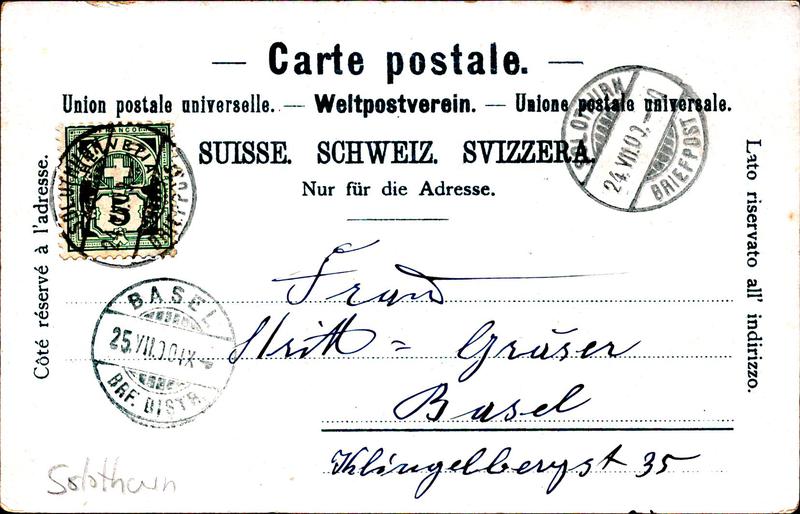 — Carte postale. —
Union postale universelle. — Weltpostverein. — Unione postale universale.
SUISSE. SCHWEIZ. SVIZZERA.
Nur für die Adresse.
Côté réservé à l'adresse.
Lato riservato all' indirizzo.
FRANCO
HELVETIA
5
SOLOTHURN
24.VII.00.
BRIEFPOST
BASEL
25.VII.00.IX
BRF. DISTR.
Frau
Stritt = Gräser
Basel
Klingelbergst 35
Solothurn